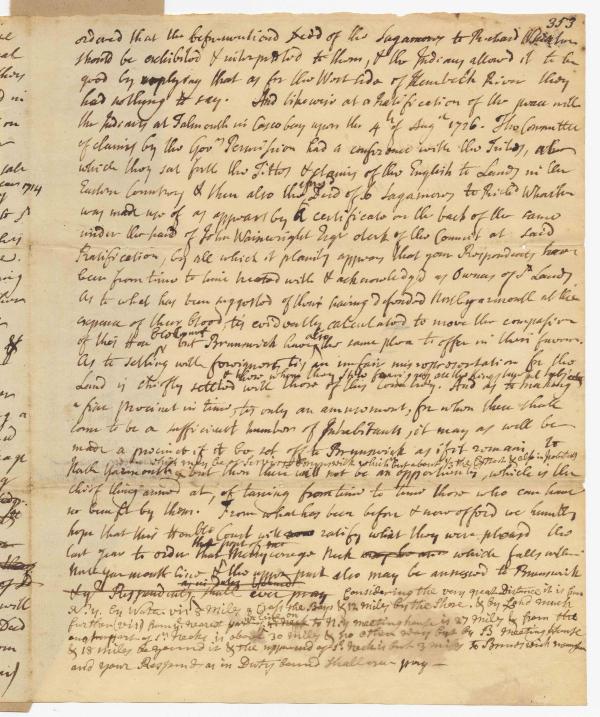 353
ordered that the beforementioned Deed of the Sagamores to Richard Wharton
should be exhibited & interpreted to them, & the Indians allowed it to be
good by replying that as for the West side of Kenebeck River they
had nothing to say. And likewise at a Ratification of the peace with
the Indians at Falmouth in Casco bay upon the 4th of Augt 1726. The Committee
of claims by the Govrs Permission had a conference with the Tribes,
which they sat forth the Titles & claims of the English to Lands in the
Eastern Country & then also the Deed of 6 Sagamores to Richd Wharton
was made use of as appears by a certificate on the back of the same
under the hand of John Wainwright Esqr clerk of the Council at said
Ratification, by all which it plainly appears that your Respondents have
been from time to time treated with & acknowledg'd as Owners of sd Lands
As to what has been suggested of their having defended North yarmouth at the
expence of their blood tis evidently calculated to move the compassion
of this Honble Court but Brunswick have also the same plea to offer in their favour.
As to setling with foreigners, tis an unfair misrepresentation for the
Land is chiefly settled with those of this Country. And as to making
a fine precinct in time, tis only an amusement, for when there shall
come to be a sufficient number of Inhabitants, it may as well be
made a precinct if it be set off to Brunswick as if it remains to
North Yarmouth
but then there will not be an opportunity, which is the
chief thing aimed at, of taxing from time to time those who can have
no benefit by them. From what has been before & now offerd we humbly
hope that this Honble Court will ratify what they were pleased the
last year to order that Merryconege Neck which falls within
North yarmouth Line & the upper part also may be annexed to Brunswick
& yr Respondents shall ever pray Considering the very great Distance it is from
N. Yar. by Water vizt 8 miles a Cross the Bays & 12 miles by the Shore, & by Land much
further vizt from ye nearest part to N Yar meeting house is 27 miles & from the
other part of sd Necks is about 30 miles & no other way but by Br meeting house
& 18 miles beyond it & the upper end of sd Neck is but 3 miles to Brunswick
and your Respondts as in Duty bound shall ever pray